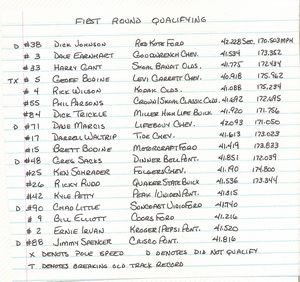 FIRST ROUND QUALIFYING
D #38 DICK JOHNSON REDKOTE FORD 42.228 SEC. 170.503 MPH
# 3 DALE EARNHART GOODWRENCH CHEV. 41.534 173.352
# 33 HARRY GANT SKOAL BANDIT OLDS. 41.775 172.434
TX # 5 GEOFF BODINE LEVI GARRETT CHEV. 40.918 175.962
# 4 RICK WILSON KODAK OLDS. 41.088 175.234
#55 PHIL PARSONS CROWN/SKOAL CLASSIC OLDS. 41.692 172.695
#84 DICK TRICKLE MILLER HIGH LIFE BUICK 41.920 171.756
D #71 DAVE MARCIS LIFEBUOY CHEV. 42.093 171.050
#17 DARRELL WALTRIP TIDE CHEV. 41.613 173.023
#15 BRETT BODINE MOTORCRAFT FORD 41.419 173.833
D #48 GREG SACKS DINNER BELL PONT. 41.851 172.039
#25 KEN SCHRADER FOLGERS CHEV. 41.190 174.800
#26 RICKY RUDD QUAKER STATE BUICK 41.536 173.344
#42 KYLE PETTY PEAK/UNIDEN PONT. 41.815
D #90 CHAD LITTLE SUNCOAST VIDIO FORD 41.740
# 9 BILL ELLIOTT COORS FORD 41.216
# 2 ERNIE IRVAN KROGER/PEPSI PONT. 41.520
D #88 JIMMY SPENCER CRISCO PONT. 41.816
X DENOTES POLE SPEED D DENOTES DID NOT QUALIFY
T DENOTES BREAKING OLD TRACK RECORD